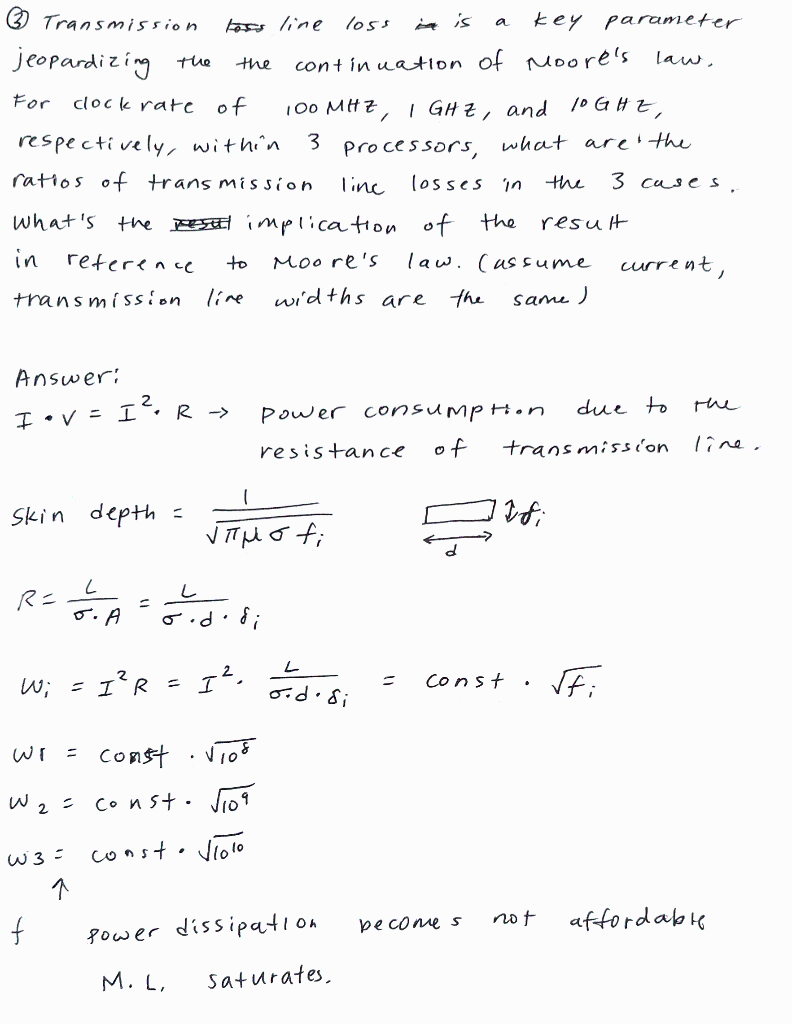 ③ Transmission loss line loss in is a key parameter
jeopardizing the the continuation of Moore's law.
For clock rate of 100 MHZ, 1 GHZ, and 10 GHZ,
respectively, within 3 processors, what are the
ratios of transmission line losses in the 3 cases.
What's the resul implication of the result
in reference to Moore's law. (assume current,
transmission line widths are the same)
Answer:
I • V = I². R → power consumption due to the
resistance of transmission line.
Skin depth = 1/√(πμσ fᵢ) ↕ δᵢ
d
R = L/(σ.A) = L/(σ.d.δᵢ)
Wᵢ = I²R = I². L/(σ.d.δᵢ) = const . √fᵢ
W1 = const . √10⁸
W₂ = const. √10⁹
W3 = const • √10¹⁰
↑
f power dissipation becomes not affordable
M.L. saturates.